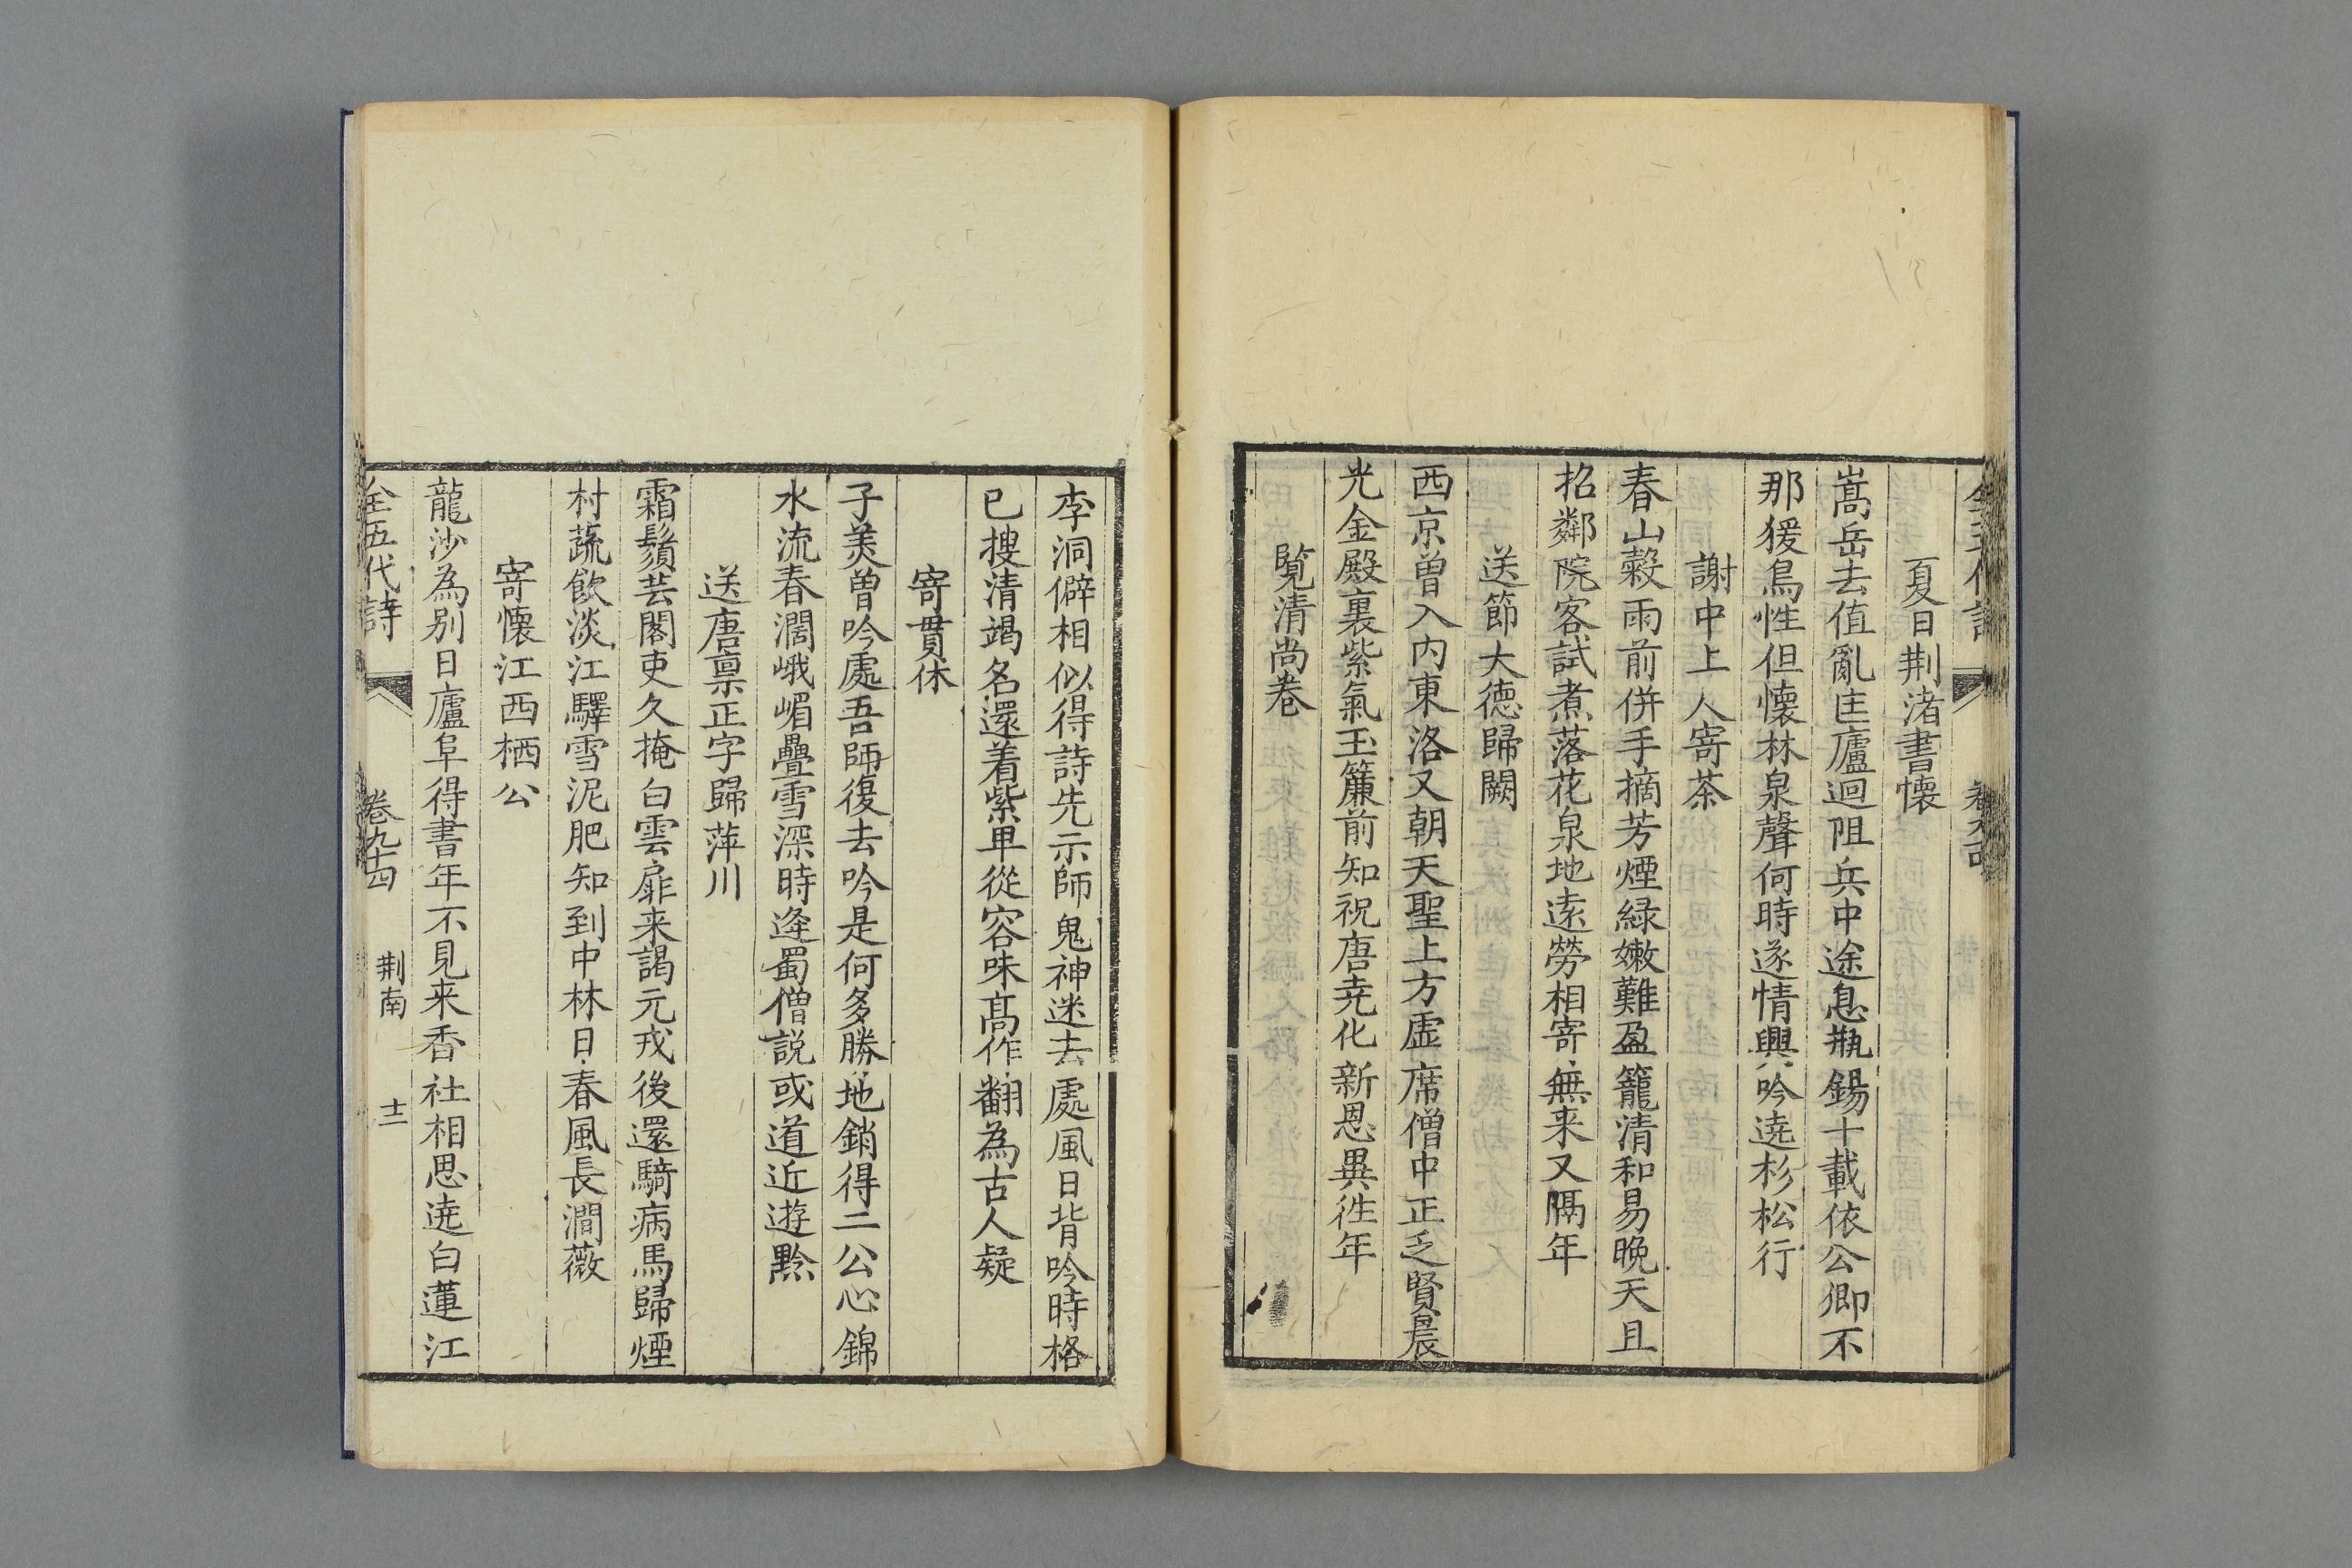 夏日荆渚書懷
嵩岳去值亂匡廬迴阻兵中途息瓶錫十載依公卿不
那猨鳥性但懷林泉聲何時遂情興吟遶杉松行
謝中上人寄茶
春山穀雨前併手摘芳煙緑嫩難盈籠清和易晚天且
招鄰院客試煮落花泉地遠勞相寄無来又隔年
送節大德歸闕
西京曾入内東洛又朝天聖上方虛席僧中正乏賢晨
光金殿裏紫氣玉簾前知祝唐尭化新恩異徃年
覧清尚卷
李洞僻相似得詩先示師鬼神迷去處風日背吟時格
已搜清竭名還着紫卑從容味髙作翻為古人疑
寄貫休
子羙曾吟處吾師復去吟是何多勝地銷得二公心錦
水流春濶峨嵋疊雪深時逢蜀僧説或道近遊黔
送唐禀正字歸萍川
霜鬚芸閣吏久掩白雲扉来謁元戎後還騎病馬歸煙
村蔬飲淡江驛雪泥肥知到中林日春風長澗薇
寄懷江西栖公
龍沙為别日廬阜得書年不見来香社相思遶白蓮江
全五代詩 卷九十四 荆南 十二